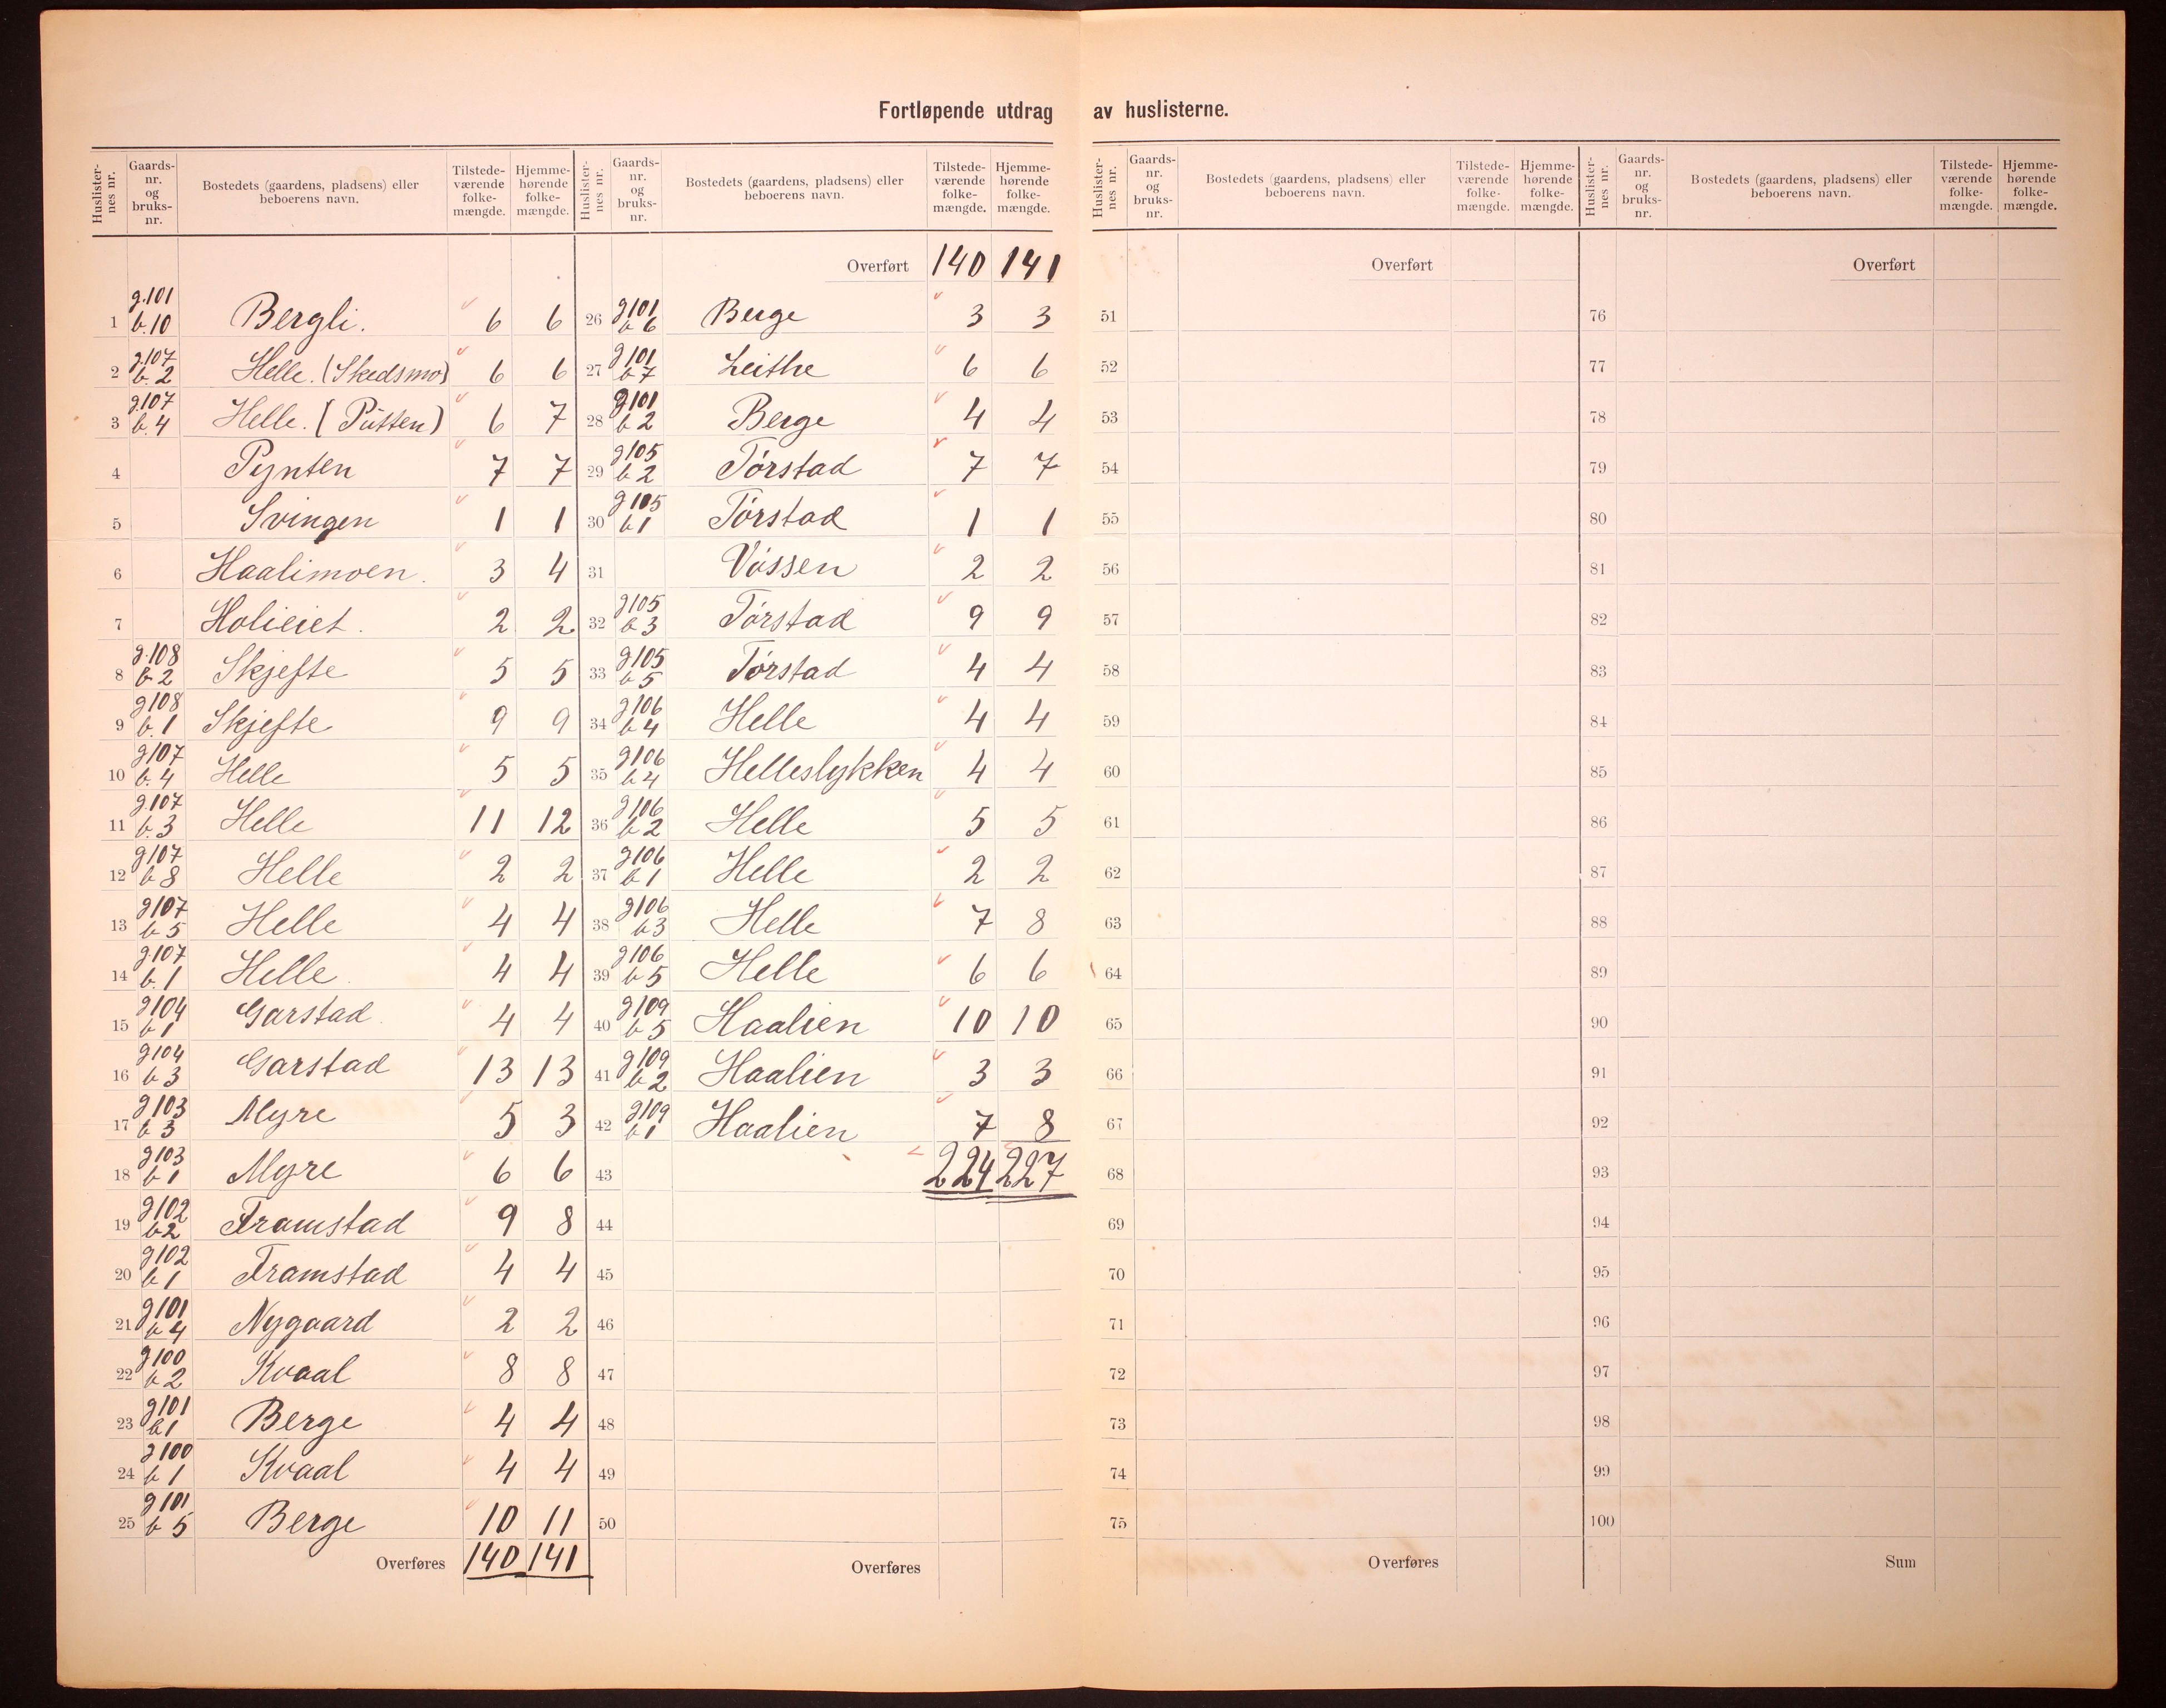 Fortløpende utdrag av huslisterne.
Huslister-nes nr. | Gaards-nr. og bruks-nr. | Bostedets (gaardens, pladsens) eller beboerens navn. | Tilstede-værende folke-mængde. | Hjemme-hørende folke-mængde.
1 g.101 b.10 Bergli. 6 6
2 g.107 b.2 Helle. (Skedsmo) 6 6
3 g.107 b.4 Helle. (Pütten) 6 7
4 Pynten 7 7
5 Svingen 1 1
6 Haalimoen. 3 4
7 Holieiet. 2 2
8 g.108 b.2 Skjefte 5 5
9 g108 b.1 Skjefte 9 9
10 g107 b.4 Helle 5 5
11 g.107 b.3 Helle 11 12
12 g107 b8 Helle 2 2
13 g107 b5 Helle 4 4
14 g.107 b.1 Helle 4 4
15 g104 b1 Garstad 4 4
16 g104 b3 Garstad 13 13
17 g103 b3 Myre 5 3
18 g103 b1 Myre 6 6
19 g102 b2 Framstad 9 8
20 g102 b1 Framstad 4 4
21 g101 b4 Nygaard 2 2
22 g100 b2 Kvaal 8 8
23 g101 b1 Berge 4 4
24 g100 b1 Kvaal 4 4
25 g101 b5 Berge 10 11
Overføres 140 141
Huslister-nes nr. | Gaards-nr. og bruks-nr. | Bostedets (gaardens, pladsens) eller beboerens navn. | Tilstede-værende folke-mængde. | Hjemme-hørende folke-mængde.
Overført 140 141
26 g101 b6 Berge 3 3
27 g101 b7 Leithe 6 6
28 g101 b2 Berge 4 4
29 g105 b2 Tórstad 7 7
30 g105 b1 Tórstad 1 1
31 Vóssen 2 2
32 g105 b3 Tórstad 9 9
33 g105 b5 Tórstad 4 4
34 g106 b4 Helle 4 4
35 g106 b4 Helleslykken 4 4
36 g106 b2 Helle 5 5
37 g106 b1 Helle 2 2
38 g106 b3 Helle 7 8
39 g106 b5 Helle 6 6
40 g109 b5 Haalien 10 10
41 g109 b2 Haalien 3 3
42 g109 b1 Haalien 7 8
43 224 227
44
45
46
47
48
49
50
Overføres
Huslister-nes nr. | Gaards-nr. og bruks-nr. | Bostedets (gaardens, pladsens) eller beboerens navn. | Tilstede-værende folke-mængde. | Hjemme-hørende folke-mængde.
Overført
51
52
53
54
55
56
57
58
59
60
61
62
63
64
65
66
67
68
69
70
71
72
73
74
75
Overføres
Huslister-nes nr. | Gaards-nr. og bruks-nr. | Bostedets (gaardens, pladsens) eller beboerens navn. | Tilstede-værende folke-mængde. | Hjemme-hørende folke-mængde.
Overført
76
77
78
79
80
81
82
83
84
85
86
87
88
89
90
91
92
93
94
95
96
97
98
99
100
Sum